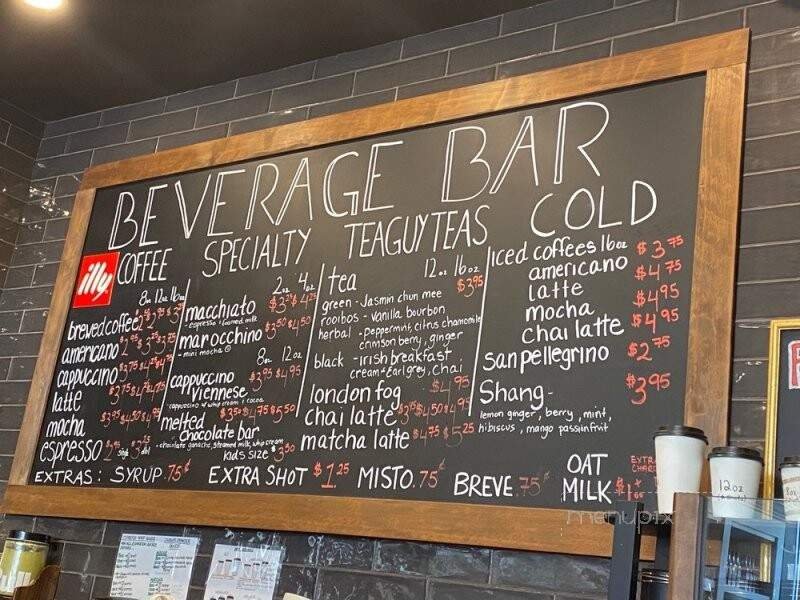 BEVERAGE BAR
illy
COFFEE
8oz 12oz 16oz
brewed coffee
americano
cappuccino
latte
mocha
espresso
SPECIALTY
2oz 4oz
macchiato $4.25
- espresso + foamed milk
marocchino $3.50 $4.50
- mini mocha
8oz 12oz
cappuccino viennese $3.95 $4.95
cappuccino w/ whip cream + cocoa
melted chocolate bar $3.50 $4.75 $5.50
- chocolate ganache, steamed milk, whip cream
kids size $3.50
TEAGUYTEAS
tea 12oz 16oz
$3.95
green - Jasmin chun mee
rooibos - vanilla bourbon
herbal - peppermint, citrus chamomile
crimson berry, ginger
black - irish breakfast
cream + Earl grey, chai
london fog $4.95
chai latte $3.75 $4.50 $4.95
matcha latte $4.75 $5.25
COLD
iced coffees 16oz
americano $3.75
latte $4.75
mocha $4.95
chai latte $4.95
san pellegrino $2.75
Shang - $3.95
lemon ginger, berry, mint,
hibiscus, mango passionfruit
EXTRAS: SYRUP .75¢ EXTRA SHOT $1.25 MISTO .75¢ BREVE .75¢
OAT MILK
EXTRA CHARGE
12oz
illy
menupix